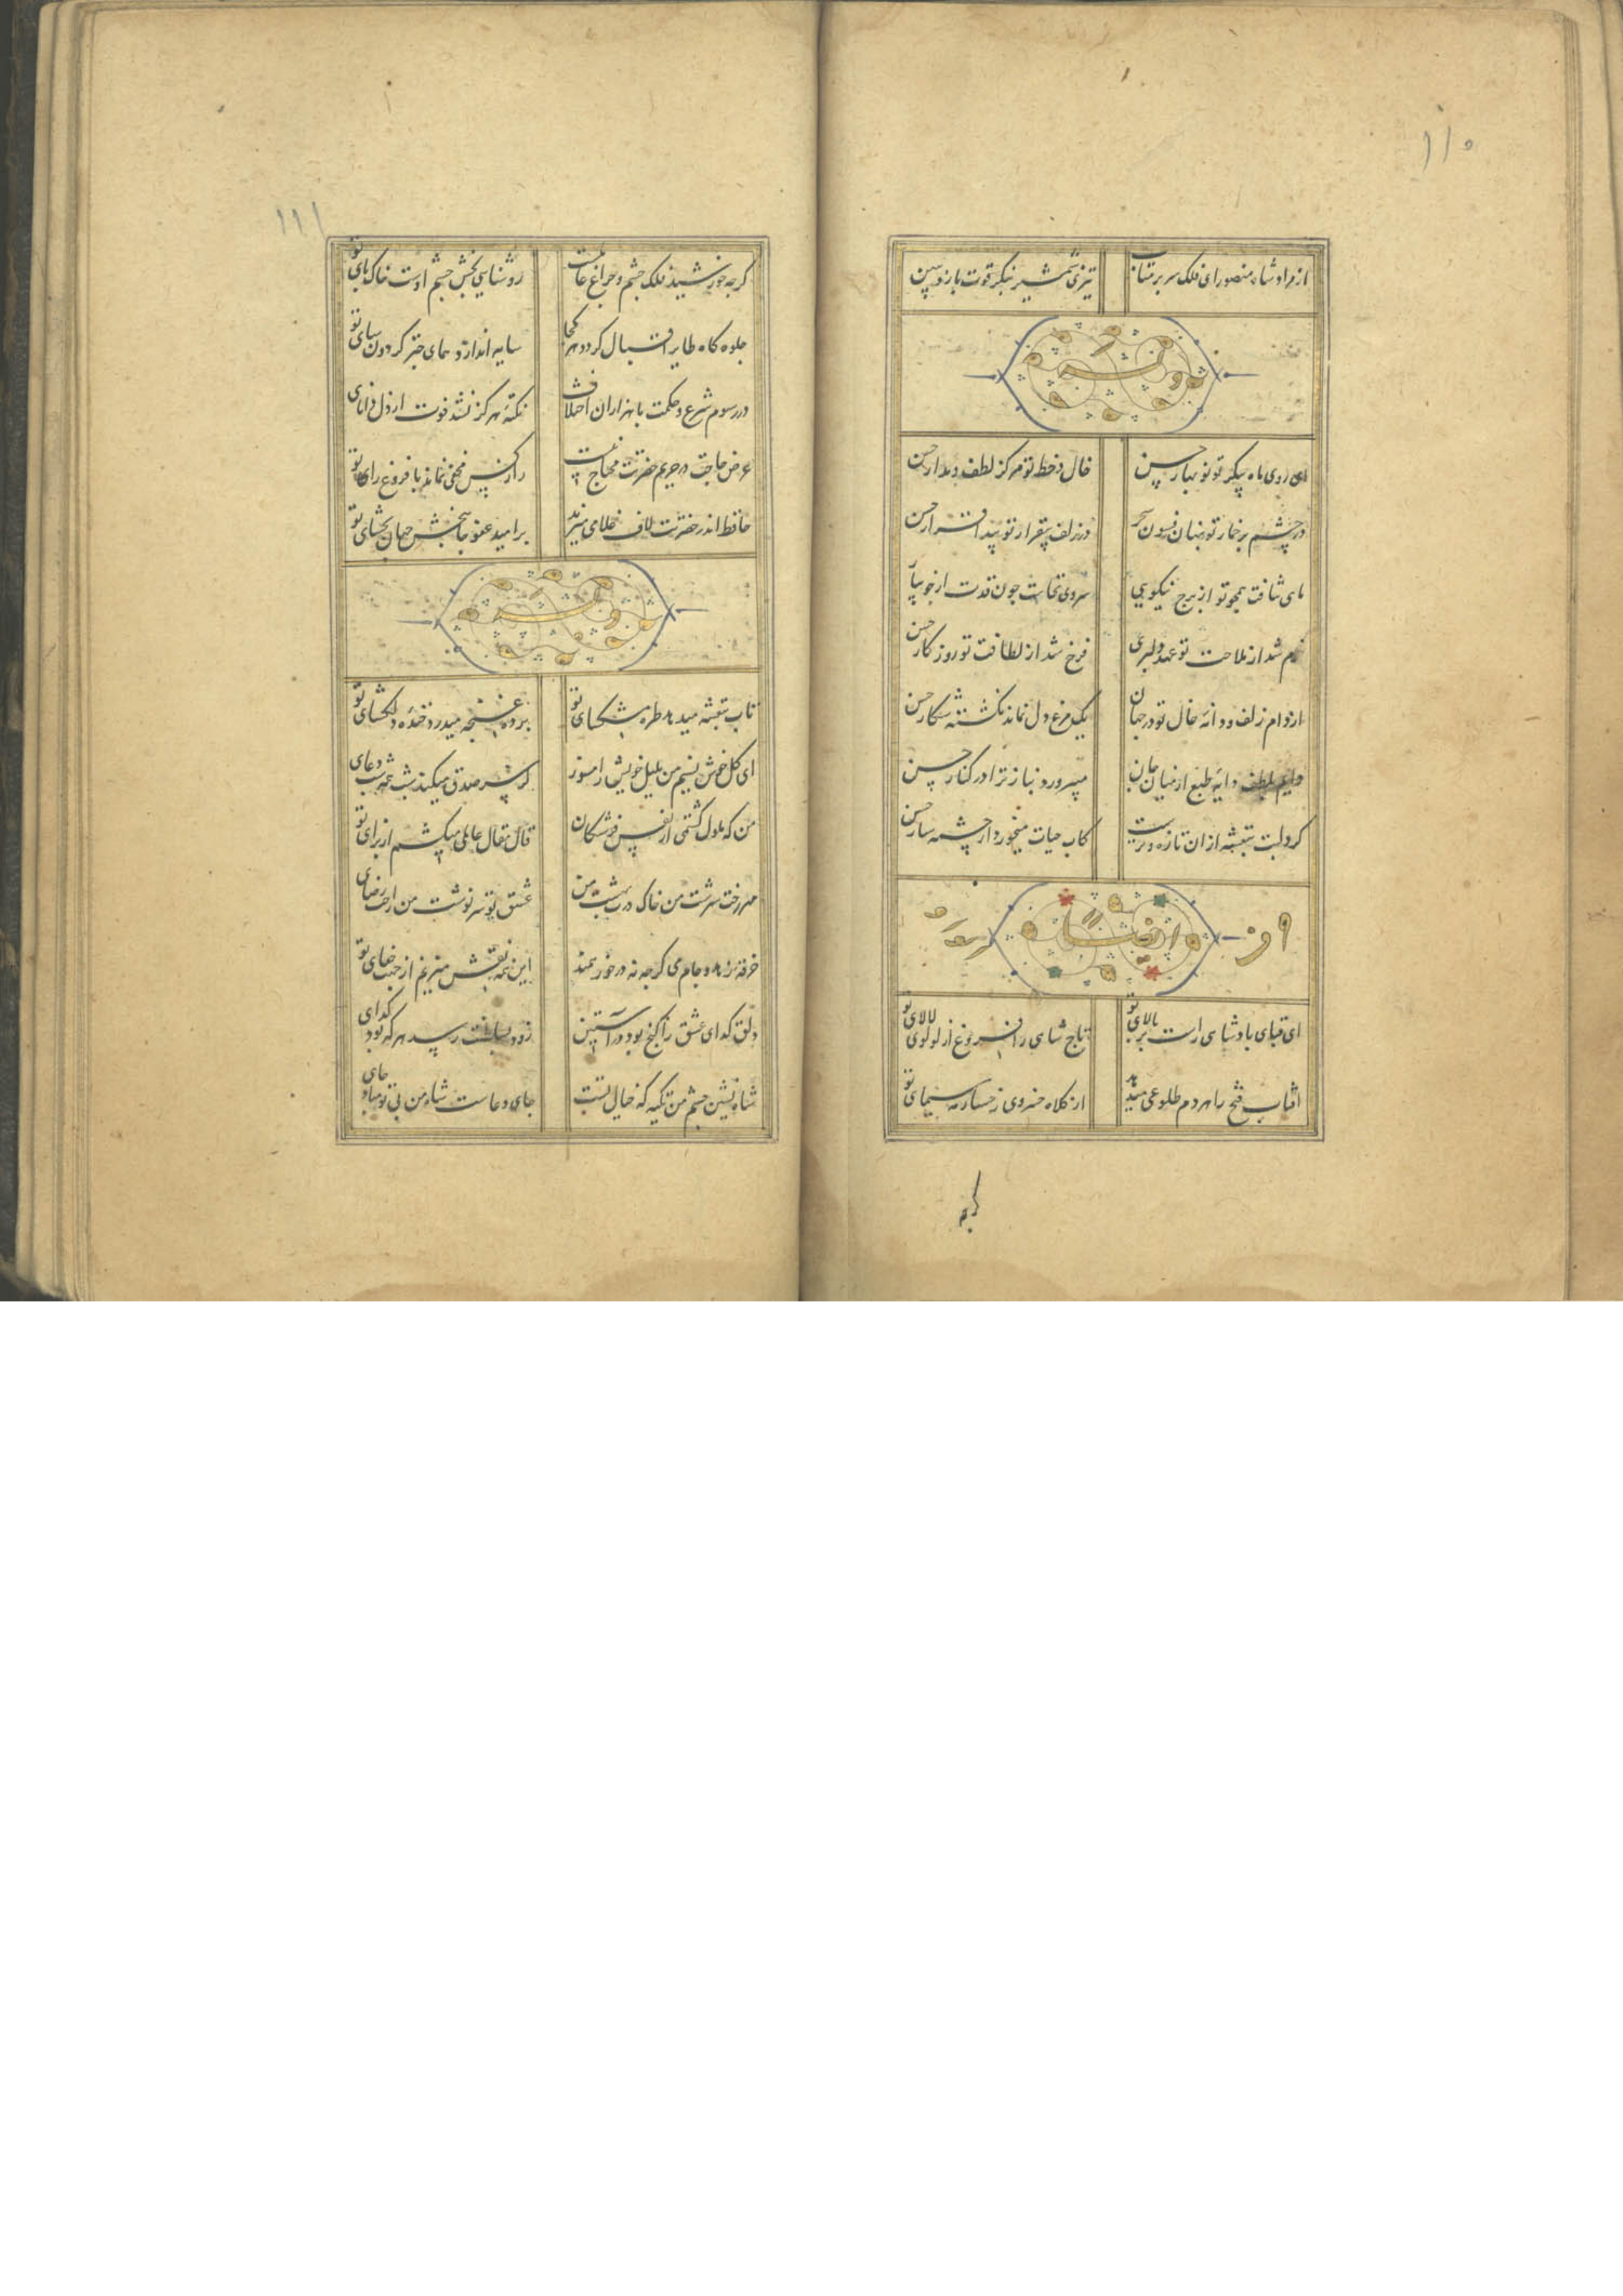 ۱۱۰
از مراد شاه منصور ای فلک سر برمتاب تیزی شمشیر بنکر قوت بازو ببین
وله
ای روی ماه پیکر تو نوبهار حسن خال و خط تو مرکز لطف و مدار حسن
در چشم پر خمار تو پنهان فسون سحر در زلف بیقرار تو پیدا قرار حسن
ماهی نتافت همچو تو از برج نیکویی سروی نخاست چون قدت از جویبار
خرم شد از ملاحت تو عهد دلبری فرخ شد از لطافت تو روزکار حسن
از دام زلف و دانه خال تو در جهان یک مرغ دل نماند نکشته شکار حسن
دایم بلطف دایه طبع از میان جان میپرورد بناز ترا در کنار حسن
کرد لبت بنفشه از ان تازه و ترست کاب حیات میخورد از چشمه سار حسن
ایضا
ای قبای پادشاهی راست بر بالای تو تاج شاهی را فروغ از لولوی لالای تو
افتاب فتح را هر دم طلوعی میدهد از کلاه خسروی رخسار مه سیمای تو
کرچه
۱۱۱
کرچه خورشید فلک چشم و چراغ عالمست روشنایی بخش چشم اوست خاک پای تو
جلوه کاه طایر اقبال کردد هر کجا سایه اندازد همای چتر کردون سای تو
در رسوم شرع و حکمت با هزاران اختلاف نکته هرکز نشد فوت از دل دانای
عرض حاجت در حریم حضرتت محتاج نیست راز کس مخفی نماند با فروغ رای تو
حافظ اندر حضرتت لاف غلامی میزند بر امید عفو جانبخش جهان بخشای تو
وله
تاب بنفشه میدهد طره مشکسای تو پرده غنچه میدرد خنده دلکشای تو
ای کل خوش نسیم من بلبل خویش را مسوز کز سر صدق میکند شب همه شب دعای
من که ملول کشتمی از نفس فرشتکان قال و مقال عالمی میکشم از برای تو
مهر رخت سرشت من خاک درت بهشت من عشق تو سرنوشت من راحت رضای
خرقه زهد و جام می کرچه نه در خور همند این همه نقش میزنم از جهت رضای تو
دلق کدای عشق را کنج بود در آستین زود بسلطنت رسد هر که بود کدای
شاه نشین چشم من تکیه که خیال تست جای دعاست شاه من بی تو مباد جای